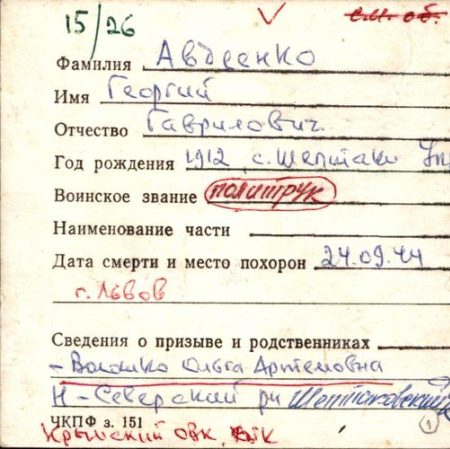 15/26
см. об.
Фамилия Авдеенко
Имя Георгий
Отчество Гаврилович
Год рождения 1912, с. Шептаки
Воинское звание политрук
Наименование части
Дата смерти и место похорон 24.09.44
г. Львов
Сведения о призыве и родственниках
- Ольга Артемовна
Н-Северский рн Шептаковский
ЧКПФ з. 151
1
Крымский ОВК,